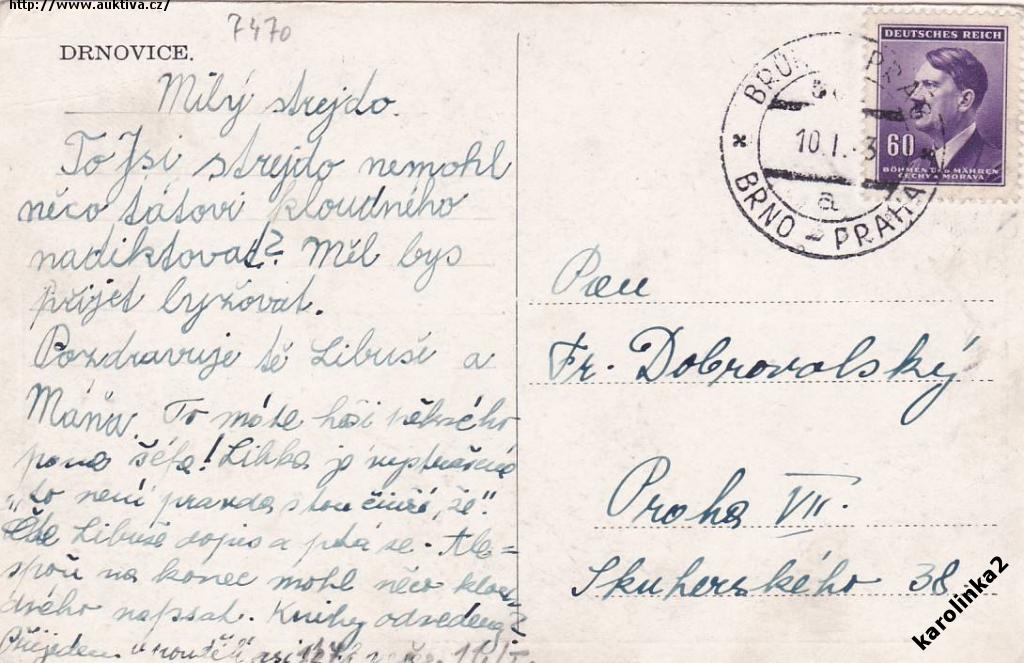 http://www.auktiva.cz/
7470
DRNOVICE.
Milý strejdo.
To Jsi strejdo nemohl
něco tátovi kloudného
nadiktovat? Měl bys
přijet lyžovat.
Pozdravuje tě Libuše a
Máňa. To máte hoši pěkného
pana šéfa! Libka je vystrašená
"to není pravda s tou
Libuše dopis a ptá se. Ale-
spoň na konec mohl něco klou-
dného napsat. Knihy odvedeny?
Přijedem v pondělí asi
DEUTSCHES REICH
60
BÖHMEN UND MÄHREN
ČECHY A MORAVA
10.I.
a
BRNO - PRAHA
Pan
Fr. Dobrovolský
Praha VII.
Skuherského 38
karolinka2